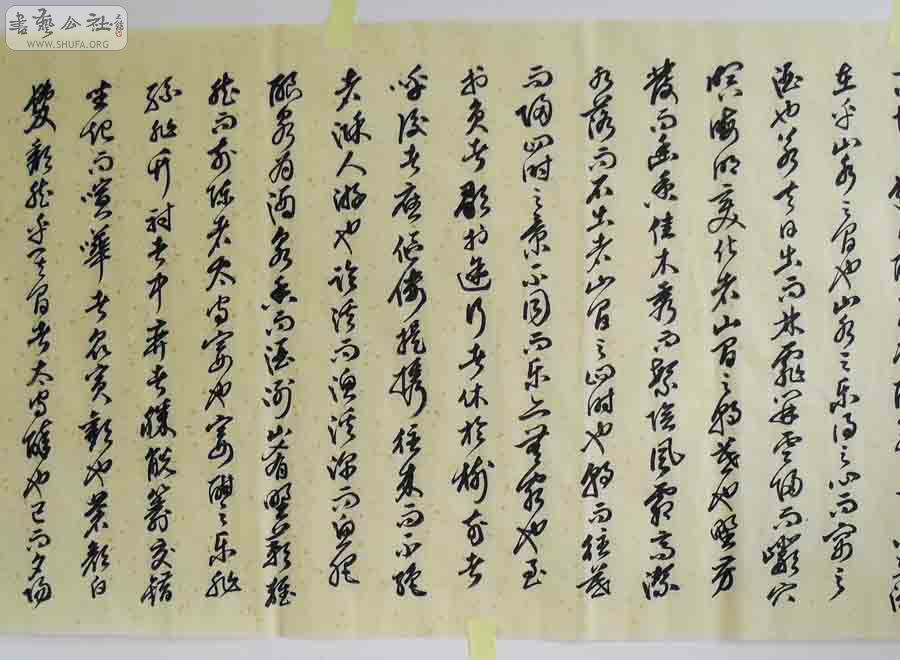 書藝公社
WWW.SHUFA.ORG
在乎山水之间也山水之乐得之心而寓之
酒也若夫日出而林霏開雲歸而巖穴
暝晦明变化者山间之朝暮也野芳
發而幽香佳木秀而繁陰風霜高潔
水落而石出者山间之四时也朝而往暮
而歸四时之景不同而乐亦無窮也至
於負者歌於途行者休於樹前者
呼後者應傴僂提攜往来而不絶
者滁人游也临溪而渔溪深而魚肥
釀泉为酒泉香而酒洌山肴野蔌雜
然而前陳者太守宴也宴酣之乐非
絲非竹射者中弈者勝觥籌交錯
坐起而喧嘩者衆賓歡也蒼顏白
髮頹然乎其间者太守醉也已而夕陽